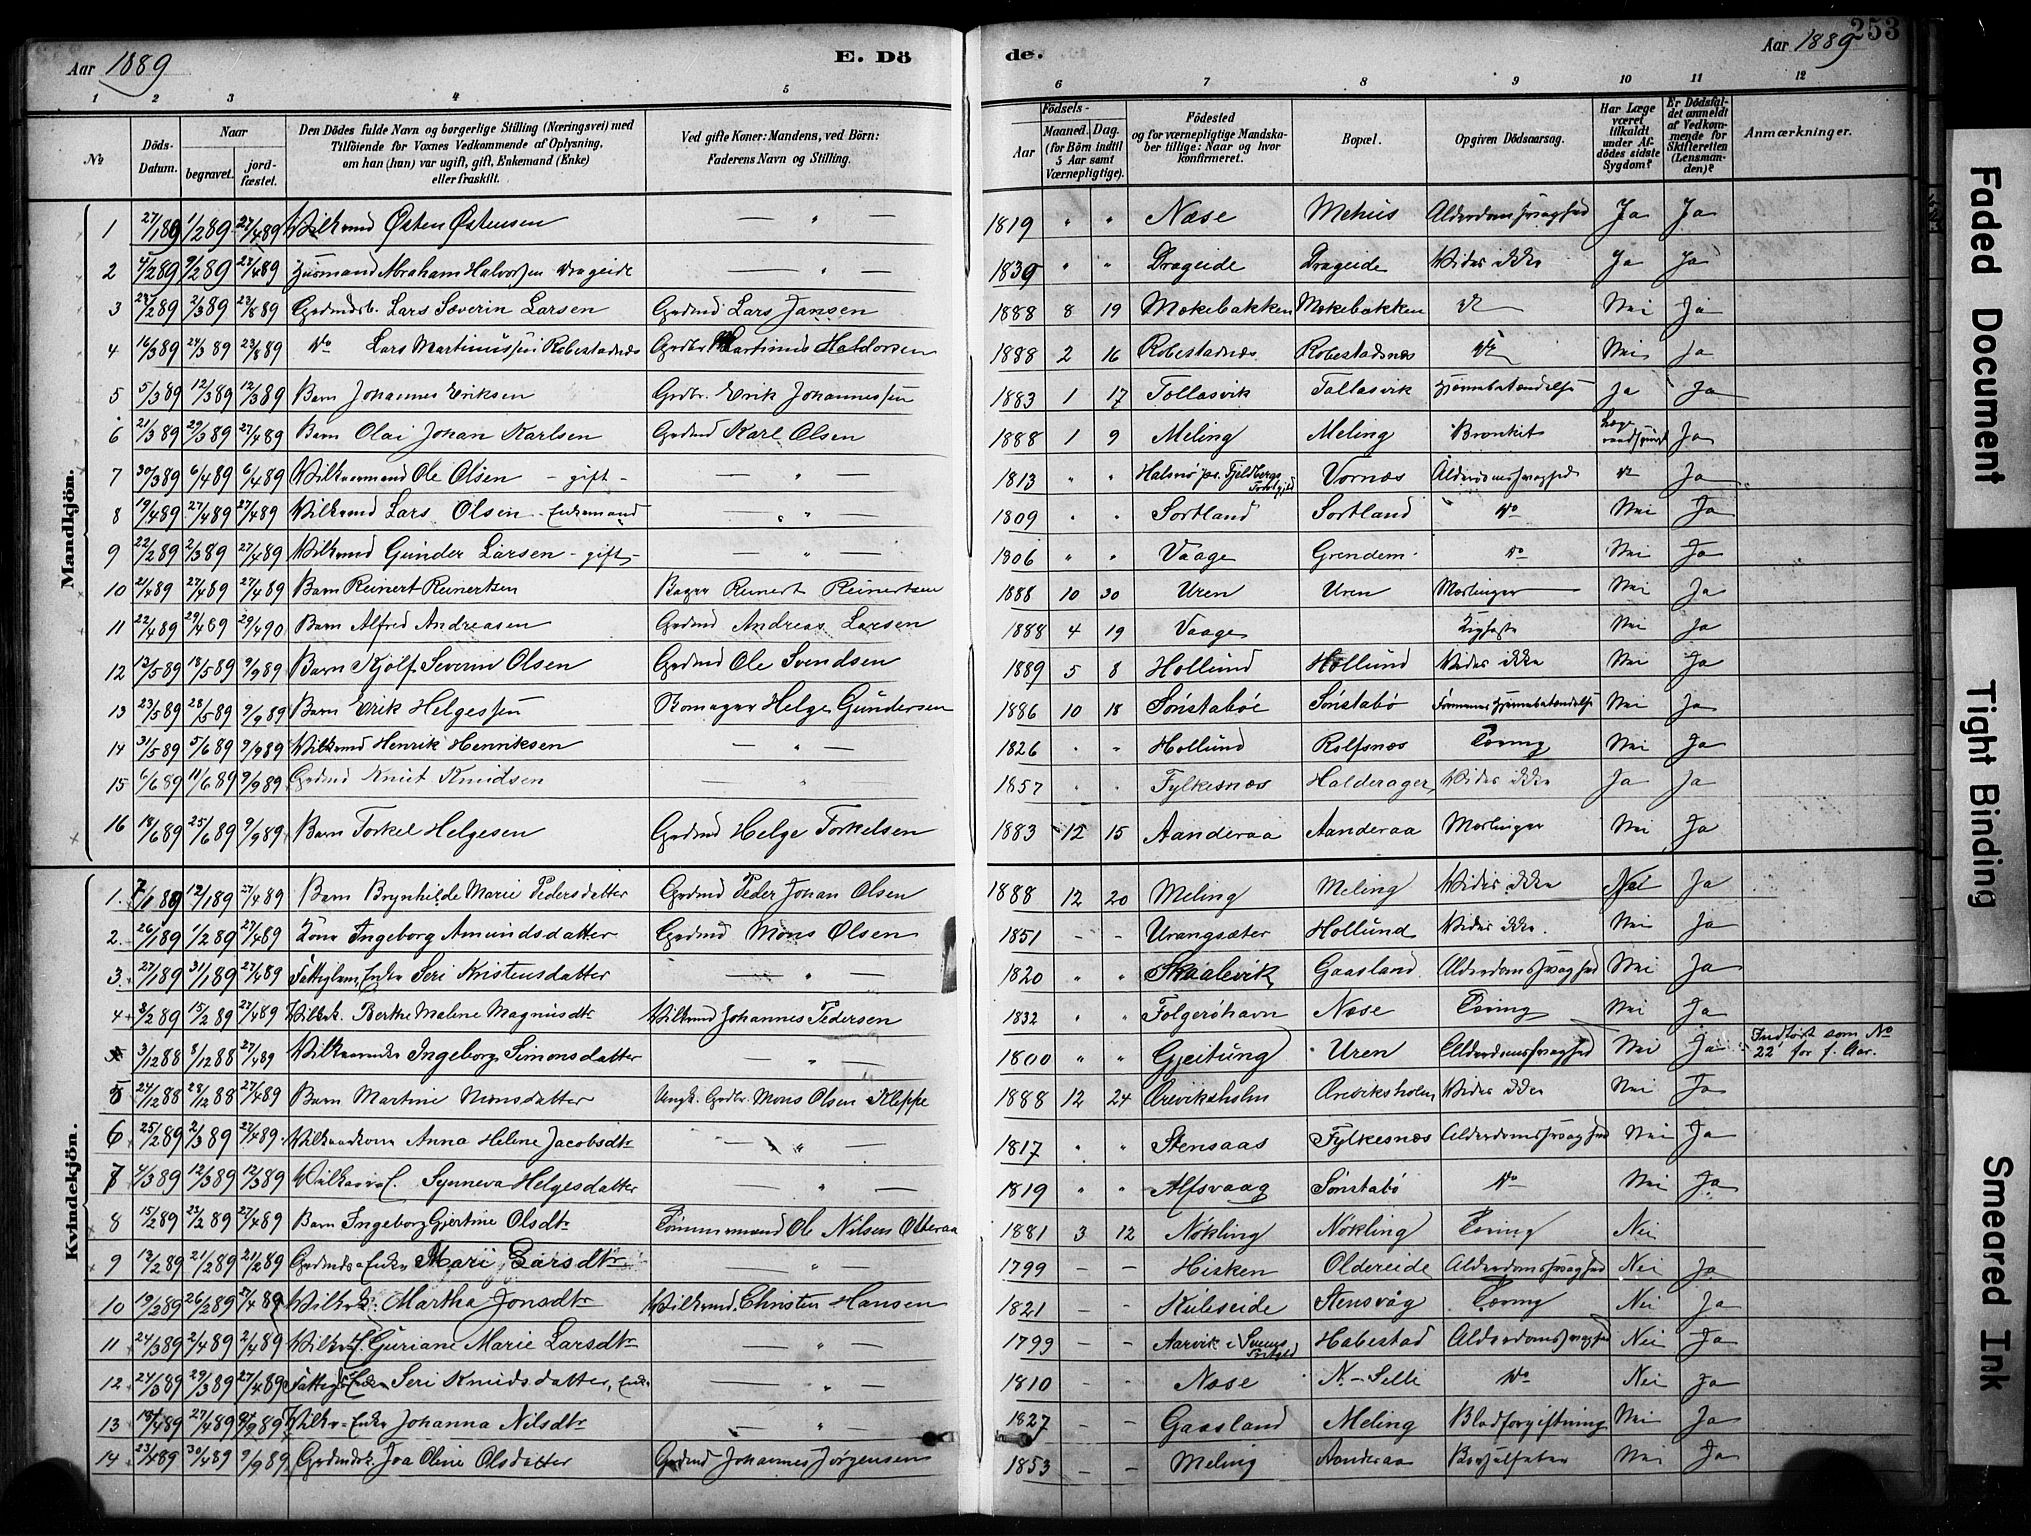 Aar 1889 E. Dö de. Aar 1889 253
1 2 3 4 5 6 7 8 9 10 11 12
No Döds-Datum. Naar begravet. jordfæstet. Den Dödes fulde Navn og borgerlige Stilling (Næringsvei) med Tilföiende for Voxnes Vedkommende af Oplysning, om han (hun) var ugift, gift, Enkemand (Enke) eller fraskilt. Ved gifte Koner: Mandens, ved Börn: Faderens Navn og Stilling. Födsels- Aar Maaned. Dag. (for Börn indtil 5 Aar samt Værnepligtige). Födested og for værnepligtige Mandskaber tillige: Naar og hvor Konfirmeret. Bopæl. Opgiven Dödsaarsag. Har Læge været tilkaldt under Afdödes sidste Sygdom? Er Dödsfaldet anmeldt af Vedkommende for Skifteretten (Lensmanden)? Anmærkninger.
Mandkjön.
1 27/1 89 1/2 89 27/4 89 Vilkmd Østen Østensen — " — 1819 " " Næse Mehus Alderdomssvaghed Ja Ja
2 4/2 89 9/2 89 27/4 89 Husmand Abraham Halvorsen Drageide — " — 1839 " " Drageide Drageide Vides ikke Ja Ja
3 2/3 89 Grdmdsb. Lars Severin Larsen Grdmd Lars Jansen 1888 8 19 Mokebakken Mokebakken Nei Ja
4 16/3 89 24/3 89 Do Lars Martinussen Robestadnæs Grdbr. Martinus Haldorsen 1888 2 16 Robestadnæs Robestadsnæs Nei Ja
5 5/3 89 12/3 89 12/3 89 Barn Johannes Eriksen Grdbr. Erik Johannessen 1883 1 17 Tollasvik Tallasvik Hjernebetændelse Ja Ja
6 21/3 89 29/3 89 27/4 89 Barn Olai Johan Karlsen Grdmd Karl Olsen 1888 1 9 Meling Meling Bronkit Ja
7 30/3 89 6/4 89 6/4 89 Vilkaarmand Ole Olsen - gift - " 1813 " " Halsnø pr. Fjeldbergs Vornæs Alderdomssvaghed Ja
8 19/4 89 27/4 89 27/4 89 Vilkmd Lars Olsen - Enkemand — " — 1809 " " Sortland Sortland Do Nei Ja
9 22/2 89 2/3 89 27/4 89 Vilkmd Gunder Larsen - gift - — " — 1806 " " Vaage Grendem Do Nei Ja
10 21/4 89 27/4 89 27/4 89 Barn Reinert Reinertsen Reinert Reinertsen 1888 10 30 Uren Uren Mæslinger Nei Ja
11 22/4 89 29/4 89 29/4 90 Barn Alfred Andreasen Grdmd Andreas Larsen 1888 4 19 Vaage Kighoste Nei Ja
12 13/5 89 18/5 89 9/9 89 Barn Kjølf Severin Olsen Grdmd Ole Svendsen 1889 5 8 Hollund Hollund Vides ikke Nei Ja
13 23/5 89 28/5 89 9/9 89 Barn Erik Helgessen Helge Gundersen 1886 10 18 Sønstabøe Sønstabø Nei Ja
14 31/5 89 5/6 89 9/9 89 Vilkmd Henrik Henriksen — " — 1826 " " Hollund Rolfsnæs Tæring Nei Ja
15 6/6 89 11/6 89 9/9 89 Grdmd Knut Knudsen " 1857 " " Fylkesnæs Halderager Vides ikke Ja Ja
16 18/6 89 25/6 89 9/9 89 Barn Torkel Helgesen Grdmd Helge Torkelsen 1883 12 15 Aanderaa Aanderaa Mæslinger Nei Ja
Kvindekjön.
1. 7/1 89 12/1 89 27/4 89 Barn Brynhilde Marie Pedersdatter Grdmd Peder Johan Olsen 1888 12 20 Meling Meling Vides ikke Nei Ja
2. 26/1 89 1/2 89 27/4 89 Kone Ingeborg Amundsdatter Grdmd Mons Olsen 1851 - - Urangsæter Hollund Vides ikke. Nei Ja
3. 27/1 89 31/1 89 27/4 89 Fattiglem, Enke Seri Kristensdatter — " — 1820 " " Skaalevik Gaasland Alderdomssvaghed Nei Ja
4 15/2 89 27/4 89 Vilkk. Berthe Malene Magnusdtr Vilkmd Johannes Pedersen 1832 " " Folgerøhavn Næse Tæring Nei Ja
3/12 88 8/12 88 27/4 89 Vilkaarenke Ingeborg Simonsdatter — " — 1800 " " Gjeitung Uren Alderdomssvaghed Nei Ja Indført som No 22 for f. Aar.
5 24/12 88 28/12 88 27/4 89 Barn Martine Monsdatter Ungk. Grdbr. Mons Olsen Kleppe 1888 12 24 Oreviksholm Oreviksholm Vides ikke Nei Ja
6 25/2 89 2/3 89 27/4 89 Vilkaarkone Anna Helene Jacobsdtr — " — 1817 " " Stensaas Fylkesnæs Alderdomssvaghed Nei Ja
7 4/3 89 12/3 89 12/3 89 Synneva Helgesdatter — " — 1819 " " Alfsvaag Sønstabø Do Nei Ja
8 15/2 89 22/2 89 27/4 89 Barn Ingeborg Gjertine Olsdtr Tømmermand Ole Nilsen Otteraa 1881 3 12 Nøkling Nøkling Tæring Nei
9 13/2 89 21/2 89 21/2 89 Enke Mari Larsdtr " 1799 - - Hisken Oldereide Alderdomssvaghed Nei Ja
10 19/2 89 26/2 89 27/4 89 Vilkk. Martha Jonsdtr Vilkmd. Christen Hansen 1821 - - Kuleseide Stensvåg Tæring Nei Ja
11 24/3 89 2/4 89 2/4 89 Guriane Marie Larsdtr — " — 1799 - - Aarvik i Habestad Alderdomssvaghed Nei Ja
12 24/3 89 29/3 89 27/4 89 Seri Knudsdatter, Enke — " — 1810 - - Næse N.-Selli Do Nei Ja
13 27/4 89 Vilk.-Enke Johanna Nilsdtr — " — 1827 - - Gaasland Meling Blodforgiftning Nei Ja
14 23/4 89 30/4 89 9/9 89 Joa Oline Olsdatter Grdmd Johannes Jørgensen 1853 - - Meling Aanderaa Barselfeber Nei Ja
Faded Document
Tight Binding
Smeared Ink